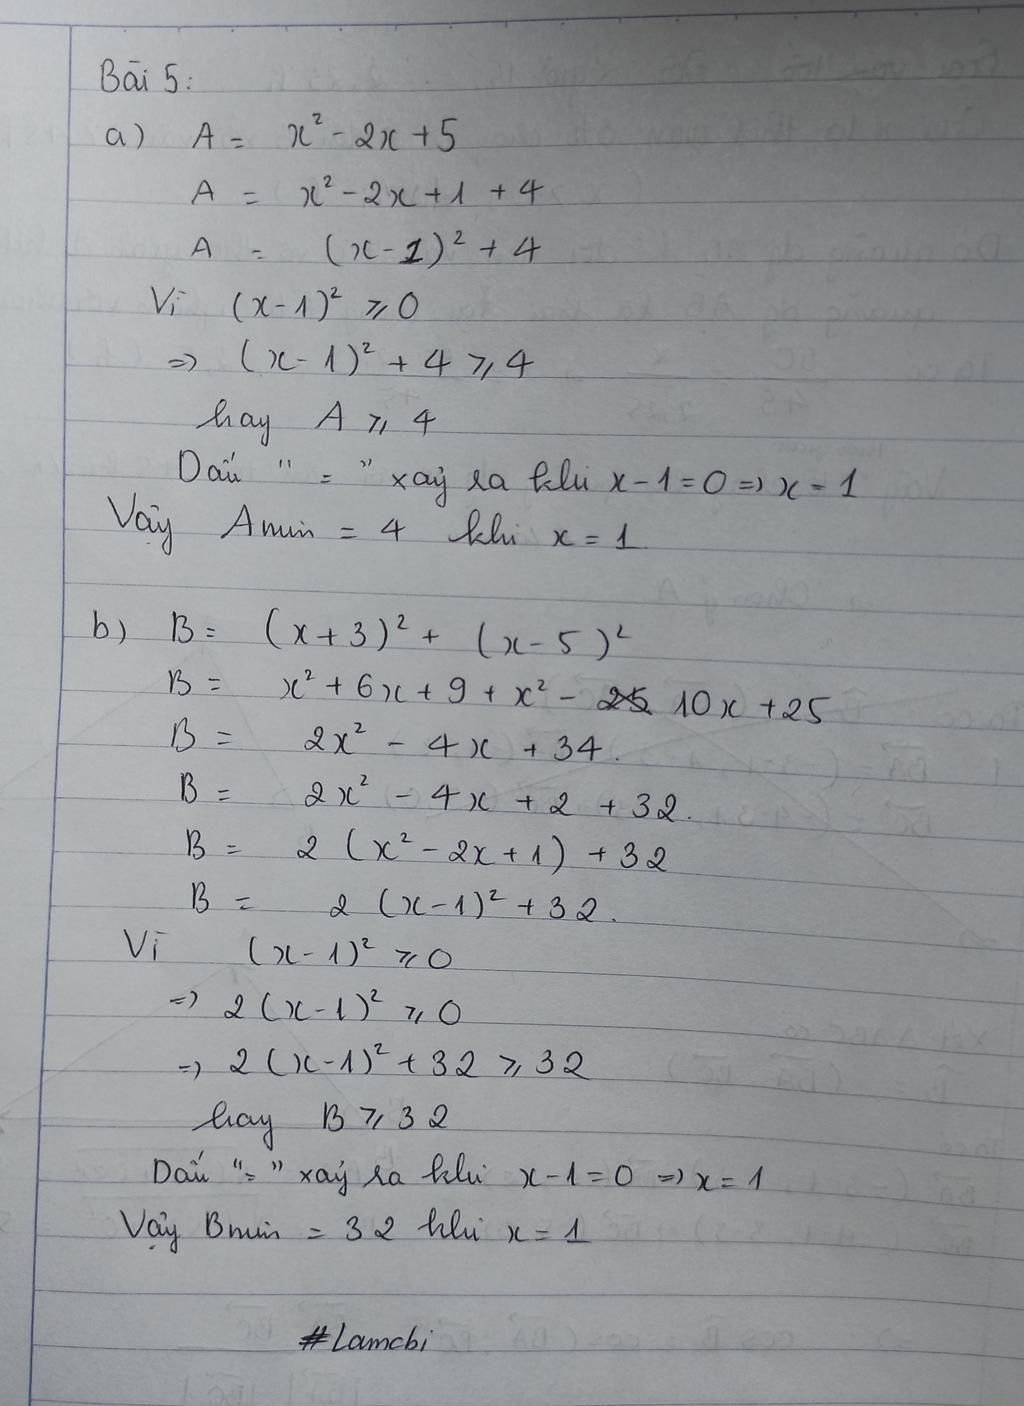 Bài 5:
a) A = x² - 2x + 5
A = x² - 2x + 1 + 4
A = (x - 1)² + 4
Vì (x - 1)² ⩾ 0
=> (x - 1)² + 4 ⩾ 4
hay A ⩾ 4
Dấu " = " xảy ra khi x - 1 = 0 => x = 1
Vậy Amin = 4 khi x = 1
b) B = (x + 3)² + (x - 5)²
B = x² + 6x + 9 + x² - 10x + 25
B = 2x² - 4x + 34.
B = 2x² - 4x + 2 + 32.
B = 2 (x² - 2x + 1) + 32
B = 2 (x - 1)² + 32.
Vì (x - 1)² ⩾ 0
=> 2 (x - 1)² ⩾ 0
=> 2 (x - 1)² + 32 ⩾ 32
hay B ⩾ 32
Dấu "=" xảy ra khi x - 1 = 0 => x = 1
Vậy Bmin = 32 khi x = 1
#Lamchi